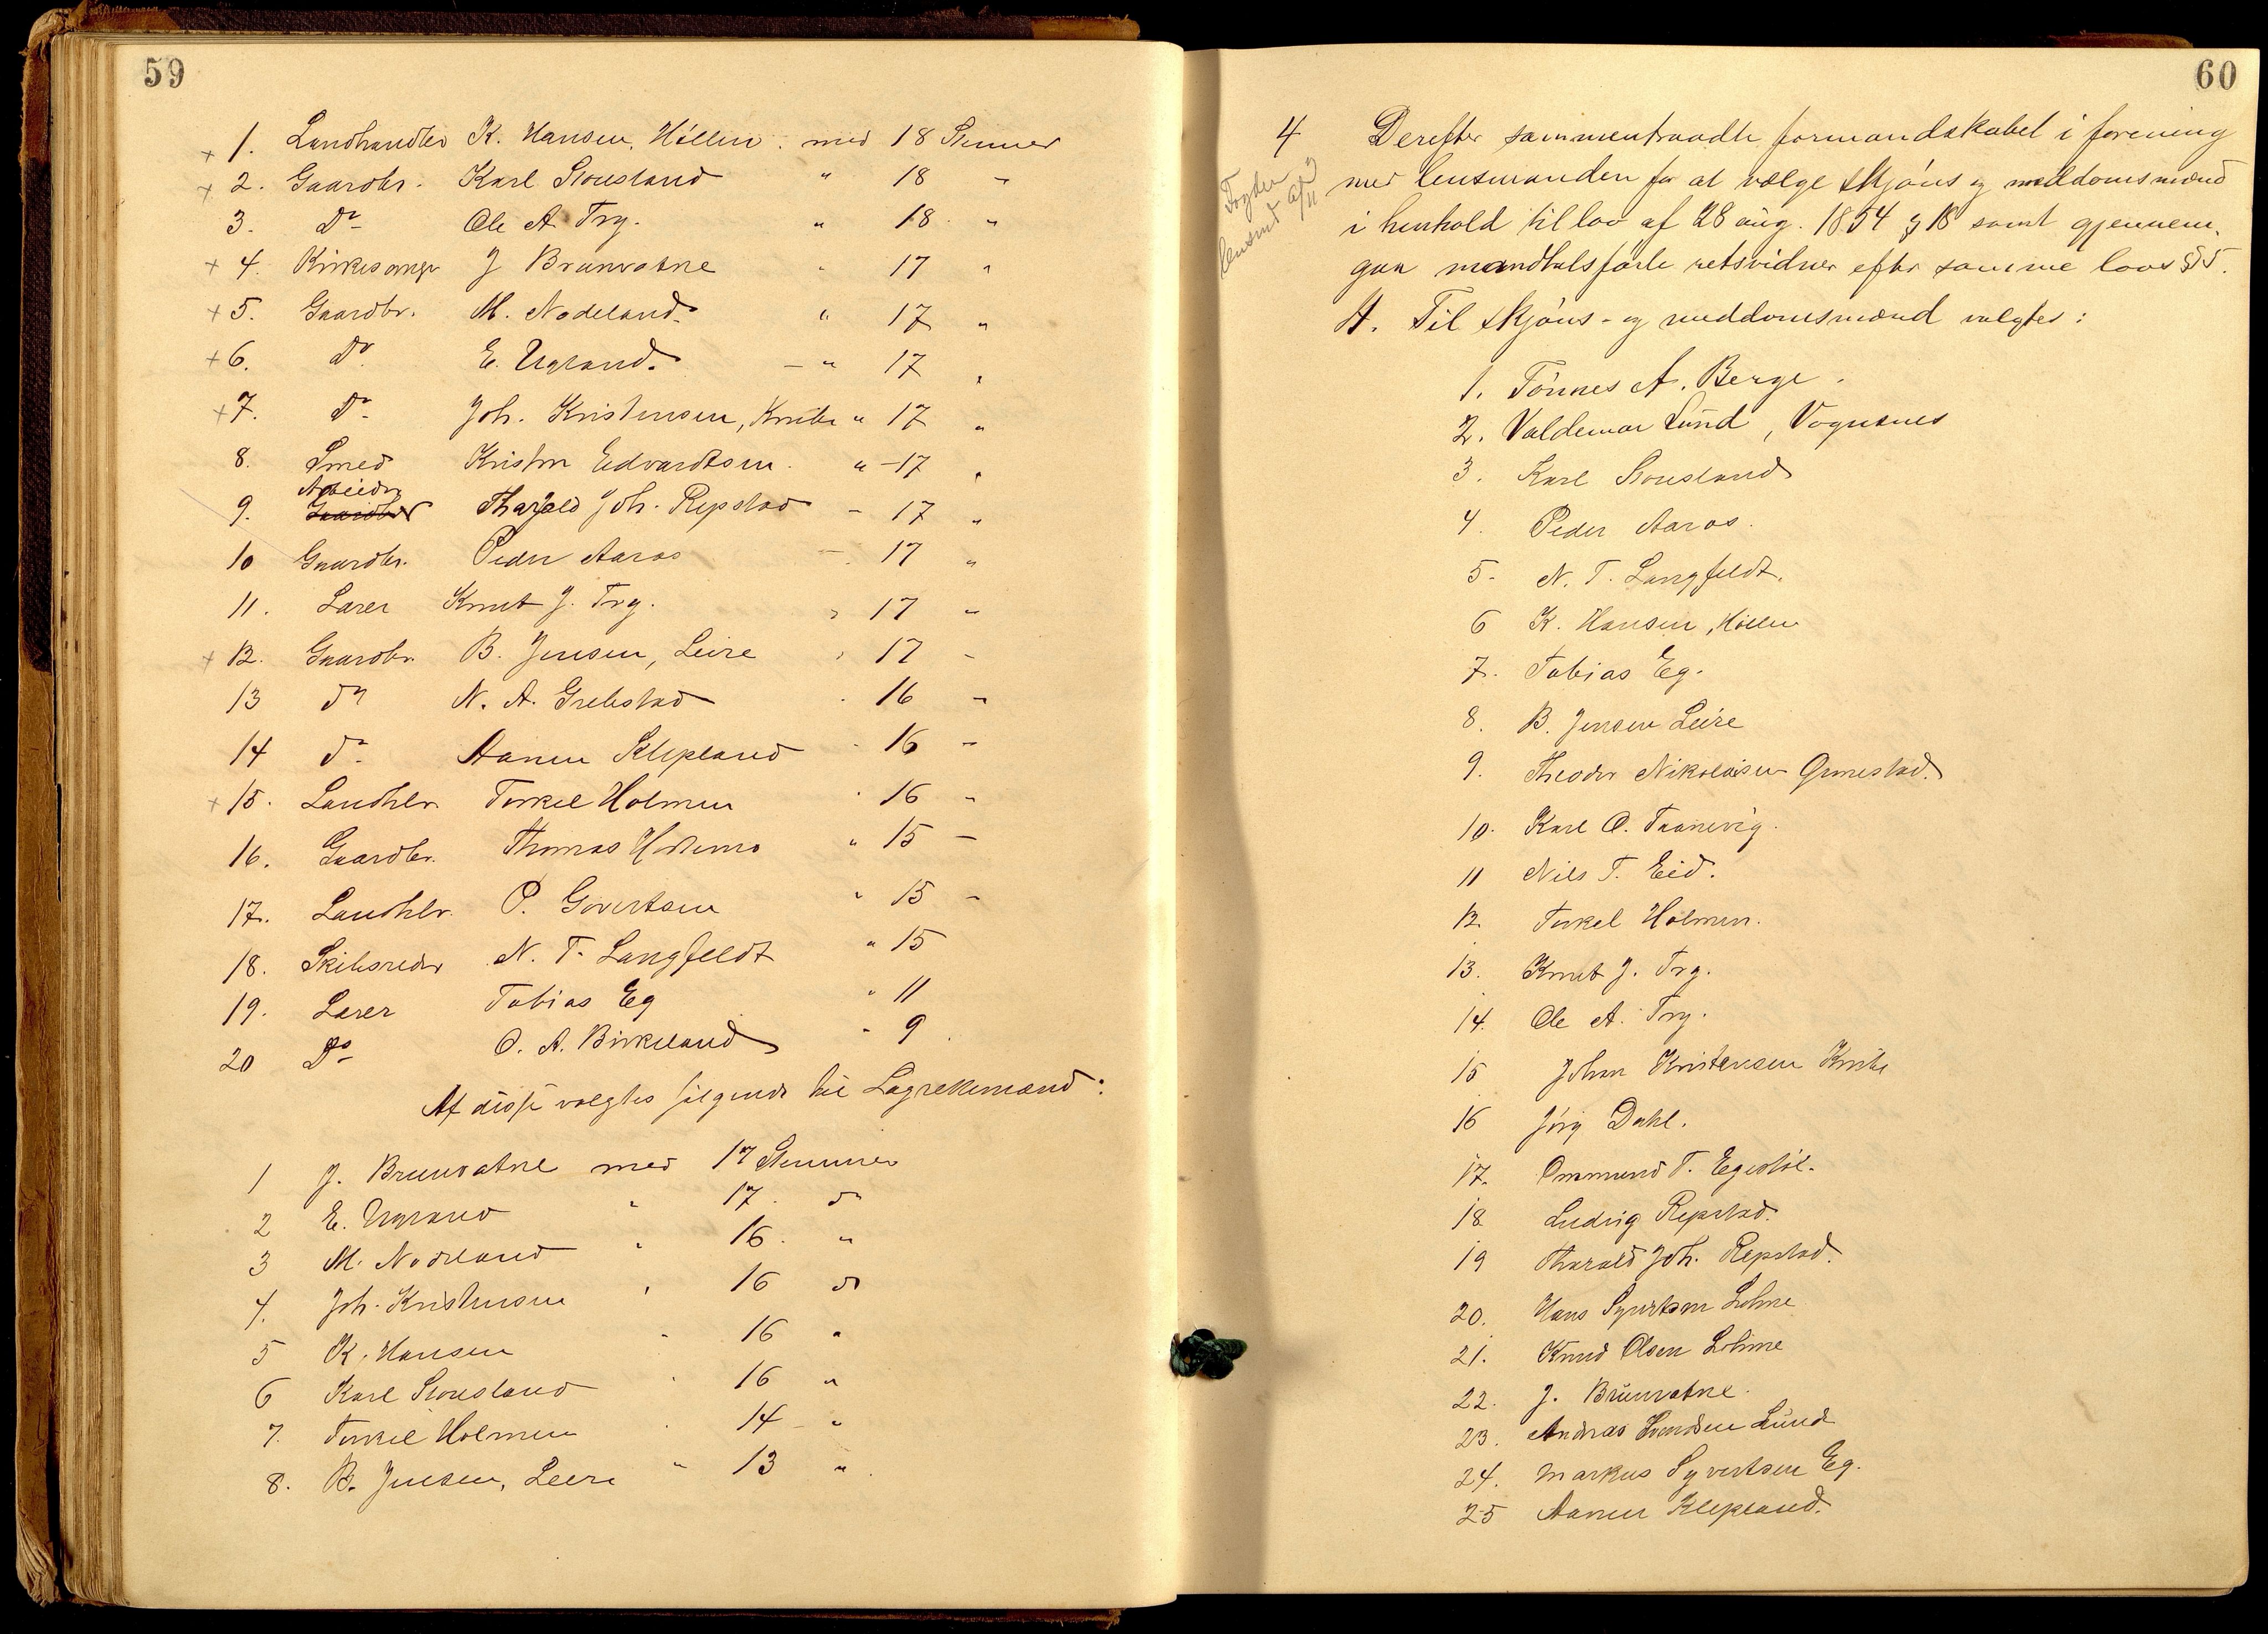 59
+ 1. Landhandler K. Hansen, Höllen. med 18 Stemmer
+ 2. Gaardbr. Karl Stousland " 18 "
3. Do Ole A. Try. " 18 "
+ 4. Kirkesanger J Brunvatne " 17 "
+ 5. Gaardbr. M. Nodeland. " 17 "
+ 6. Do E. Ugland. - " 17 "
+ 7. Do Joh. Kristensen, Knibe " 17 "
8. Smed Kristen Edvardtsen. " -17 "
Arbeider
9. Gaardbr Tharald Joh. Repstad - 17 "
10 Gaardbr. Peder Aaros - 17 "
11. Lærer Knut J. Try. " 17 "
+ 12. Gaardbr. B. Jensen, Leire " 17 -
13 do N. A. Grebstad " 16 "
14 do Aanen Klepland " 16 -
+ 15. Landhlr. Torkel Holmen " 16 "
16. Gaardbr. Thomas " 15 -
17. Landhlr. P. Govertsen " 15 -
18. Skibsreder N. T. Langfeldt " 15
19. Lærer Tobias Eg " 11
20 Do O. A. Birkeland " 9
Af disse valgtes følgende til Lagrettemænd:
1 J. Brunvatne med 17 Stemmer
2 E. Ugland " 17. do
3 M. Nodeland " 16. "
4. Joh. Kristensen " 16 do
5 K. Hansen " 16 "
6 Karl Stousland " 16 "
7. Torkel Holmen " 14 - "
8. B. Jensen, Leere " 13 "
60
4 Derefter sammentraadte formandskabet i forening
Fogden
lensmd
med lensmanden for at vælge skjöns og meddomsmænd
i henhold til lov af 28 aug. 1854 § 18 samt gjennem-
gaa mandtalsförte retsvidner efter samme lovs § 5.
A. Til skjöns- og meddomsmænd valgtes:
1. Tönnes A. Berge.
2. Valdemar Lund, Vognsnes
3. Karl Stousland
4. Peder Aaros.
5. N. T. Langfeldt.
6 K. Hansen, Höllen
7. Tobias Eg.
8. B. Jensen Leire
9. Theodor Nikolaisen Grimestad.
10. Karl O. Taanevig.
11 Nils T. Eid.
12. Torkel Holmen.
13. Knut J. Try.
14. Ole A. Try.
15 Johan Kristensen Knibe
16 Jörg Dahl.
17. Ommund T. Egestöl.
18 Ludvig Repstad.
19 Tharald Joh. Repstad.
20. Hans Syvertsen Lohne
21. Knud Olsen Lohne
22. J. Brunvatne.
23. Andreas Lund
24. Markus Syvertsen Eg.
25 Aanen Klepland.